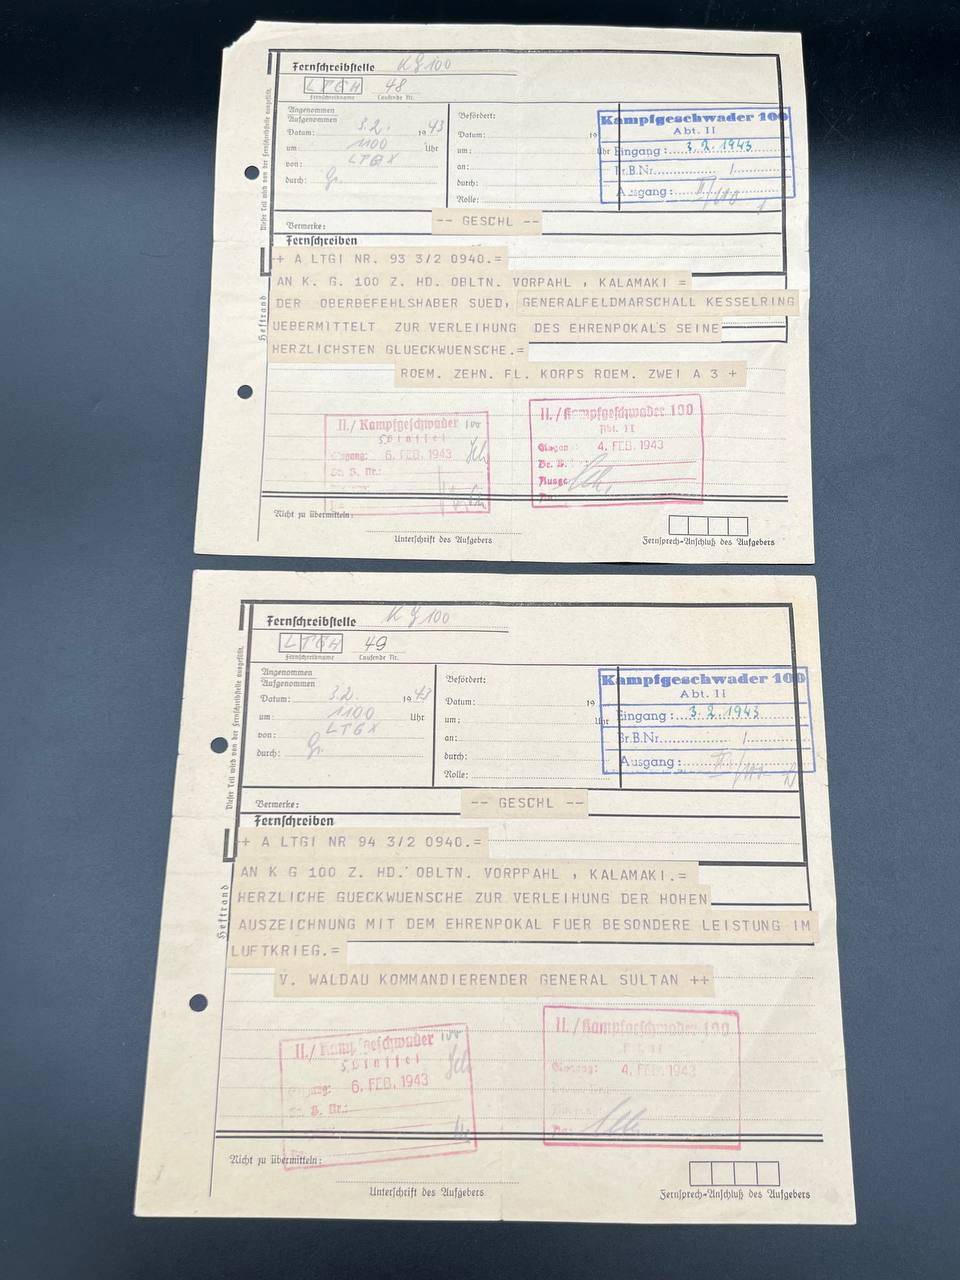 Fernschreibstelle KG 100
LTCH 48
Fernschreibname Laufende Nr.
Dieser Teil wird von der Fernschreibstelle ausgefüllt.
Angenommen
Aufgenommen
Datum: 3.2. 1943
um: 1100 Uhr
von: LTGX
durch: Gr.
Befördert:
Datum: 19
um: Uhr
an:
durch:
Rolle:
Kampfgeschwader 100
Abt. II
Eingang: 3.2.1943
Br.B.Nr. /
Ausgang: II/100
Bermerke:
-- GESCHL --
Fernschreiben
Heftrand
+ A LTGI NR. 93 3/2 0940.=
AN K. G. 100 Z. HD. OBLTN. VORPAHL , KALAMAKI =
DER OBERBEFELSHABER SUED, GENERALFELDMARSCHALL KESSELRING
UEBERMITTELT ZUR VERLEIHUNG DES EHRENPOKALS SEINE
HERZLICHSTEN GLUECKWUENSCHE.=
ROEM. ZEHN. FL. KORPS ROEM. ZWEI A 3 +
II./Kampfgeschwader 100
5. Staffel
Eingang: 6. FEB. 1943
Br. B. Nr.:
II./Kampfgeschwader 100
Abt. II
Eingang: 4. FEB. 1943
Br. B.
Ausg
Nicht zu übermitteln:
Unterschrift des Aufgebers
Fernsprech-Anschluß des Aufgebers
Fernschreibstelle KG 100
LTCH 49
Fernschreibname Laufende Nr.
Dieser Teil wird von der Fernschreibstelle ausgefüllt.
Angenommen
Aufgenommen
Datum: 3.2. 1943
um: 1100 Uhr
von: LTGX
durch: Gr.
Befördert:
Datum: 19
um: Uhr
an:
durch:
Rolle:
Kampfgeschwader 100
Abt. II
Eingang: 3.2.1943
Br.B.Nr. /
Ausgang: II/100
Bermerke:
-- GESCHL --
Fernschreiben
Heftrand
+ A LTGI NR 94 3/2 0940.=
AN K G 100 Z. HD. OBLTN. VORPPAHL , KALAMAKI.=
HERZLICHE GUECKWUENSCHE ZUR VERLEIHUNG DER HOHEN
AUSZEICHNUNG MIT DEM EHRENPOKAL FUER BESONDERE LEISTUNG IM
LUFTKRIEG.=
V. WALDAU KOMMANDIERENDER GENERAL SULTAN ++
II./Kampfgeschwader 100
5. Staffel
Eingang: 6. FEB. 1943
Br. B. Nr.:
II./Kampfgeschwader 100
Eingang: 4. FEB. 1943
Nicht zu übermitteln:
Unterschrift des Aufgebers
Fernsprech-Anschluß des Aufgebers